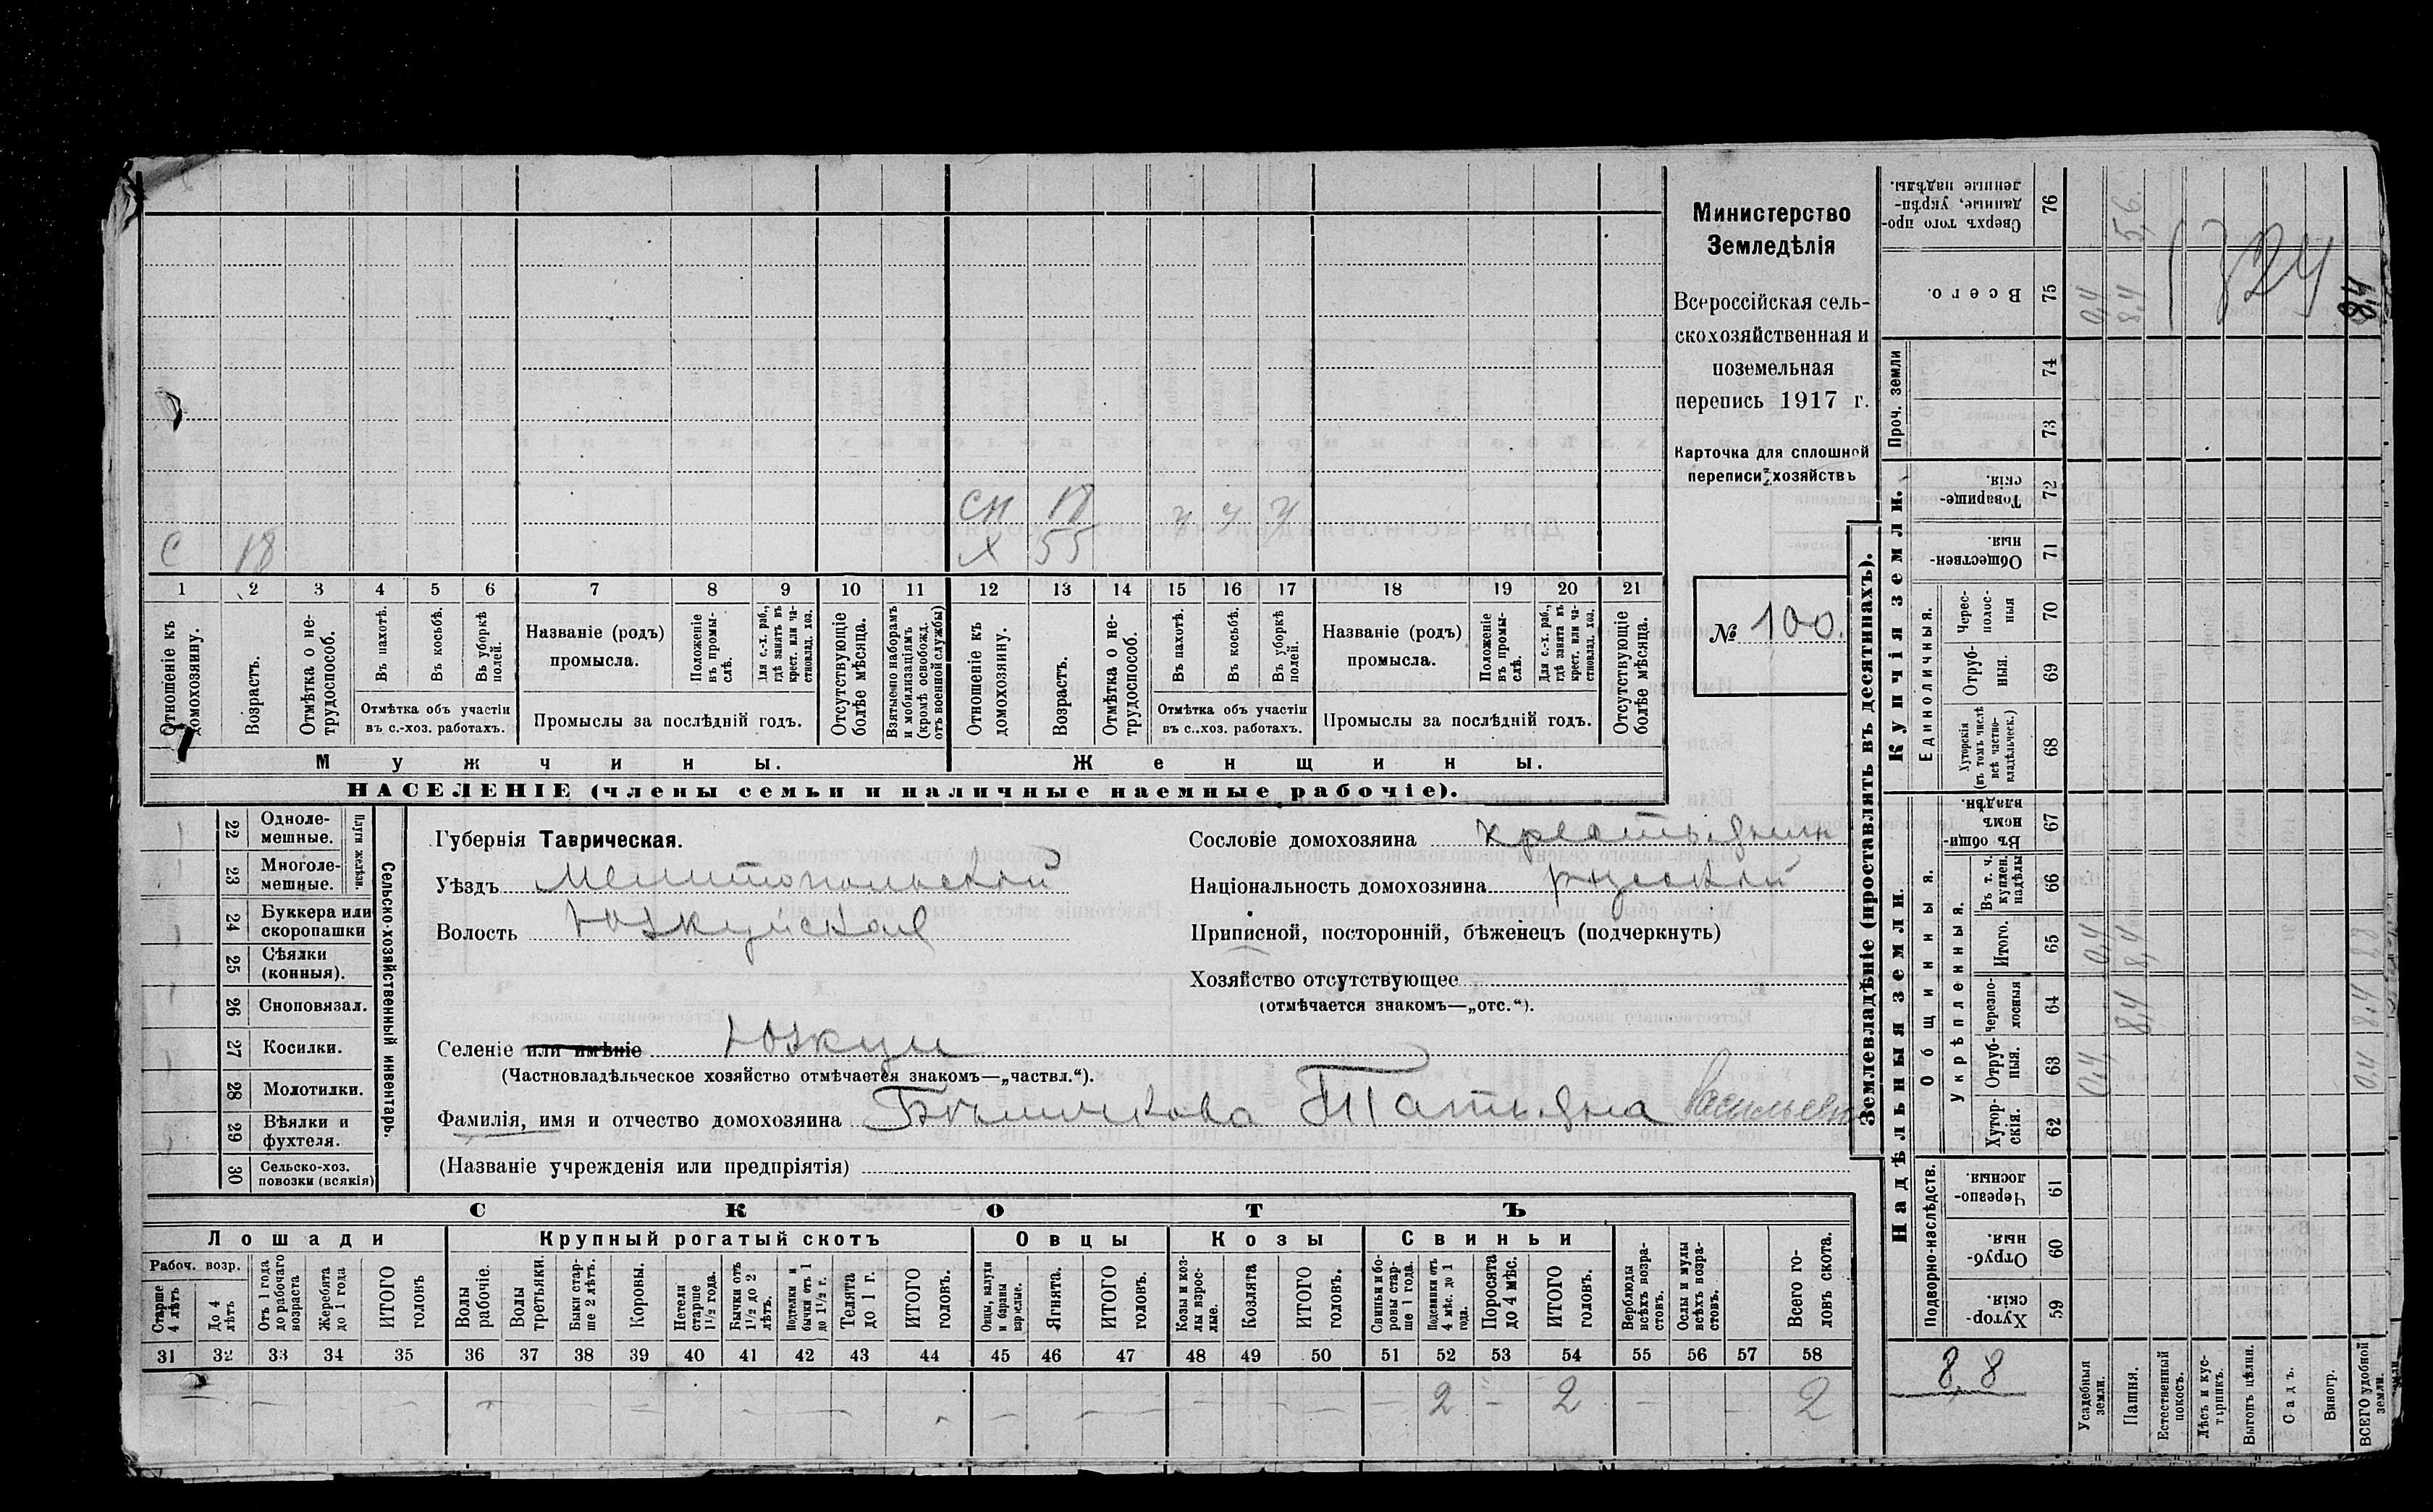 Министерство
Земледѣлія
Всероссійская сель-
скохозяйственная и
поземельная
перепись 1917 г.
Карточка для сплошной
переписи хозяйствъ
№ 100.
сн 18 у у у
с 18 х 55
1 2 3 4 5 6 7 8 9 10 11 12 13 14 15 16 17 18 19 20 21
Отношеніе къ домохозяину.
Возрастъ.
Отмѣтка о не-трудоспособ.
Въ пахотѣ.
Въ косьбѣ.
Въ уборкѣ полей.
Отмѣтка объ участіи
въ с.-хоз. работахъ.
Названіе (родъ)
промысла.
Положеніе въ промы-слѣ.
Для с.-х. раб., гдѣ занятъ въ крест. или ча-стновлад. хоз.
Промыслы за послѣдній годъ.
Отсутствующіе болѣе мѣсяца.
Взятыено наборамъ и мобилизаціямъ (кромѣ освобожд. отъ военной службы)
Отношеніе къ домохозяину.
Возрастъ.
Отмѣтка о не-трудоспособ.
Въ пахотѣ.
Въ косьбѣ.
Въ уборкѣ полей.
Отмѣтка объ участіи
въ с..хоз. работахъ.
Названіе (родъ)
промысла.
Положеніе въ промы-слѣ.
Для с.-х. раб., гдѣ занятъ въ крест. или ча-стновлад. хоз.
Промыслы за послѣдній годъ.
Отсутствующіе болѣе мѣсяца.
Мужчины. Женщины.
НАСЕЛЕНІЕ (члены семьи и наличные наемные рабочіе).
22 Одноле-мешные.
23 Многоле-мешные.
Плуги желѣзн.
24 Буккера или скоропашки
25 Сѣялки (конныя).
26 Сноповязал.
27 Косилки.
28 Молотилки.
29 Вѣялки и фухтеля.
30 Сельско-хоз. повозки (всякія)
Сельско-хозяйственный инвентарь.
Губернія Таврическая.
Уѣздъ Мелитопольской
Волость Юзкуйская
Селеніе или имѣніе Юзкуи
(Частновладѣльческое хозяйство отмѣчается знакомъ—„частвл.“).
Сословіе домохозяина крестьянин
Національность домохозяина русской
Приписной, посторонній, бѣженецъ (подчеркнуть)
Хозяйство отсутствующее
(отмѣчается знакомъ—„отс.“).
Фамилія, имя и отчество домохозяина Татьяна Васильевн
(Названіе учрежденія или предпріятія)
СКОТЪ
Лошади Крупный рогатый скотъ Овцы Козы Свиньи
Рабоч. возр.
Старше 4 лѣтъ
До 4 лѣтъ
Отъ 1 года до рабочаго возраста
Жеребята до 1 года
ИТОГО головъ
Волы рабочіе.
Волы третьяки.
Быки стар-ше 2 лѣтъ.
Коровы.
Нетели старше 1½ года.
Бычки отъ 1½ до 2 лѣтъ.
Подтелки и бычки отъ 1 до 1½ г.
Телята до 1 г.
ИТОГО головъ.
Овцы, валухи и бараны взрослые.
Ягнята.
ИТОГО головъ.
Козы и коз-лы взрос-лые.
Козлята
ИТОГО головъ.
Свиньи и бо-ровы стар-ше 1 года.
Подсвинки отъ 4 мѣс. до 1 года.
Поросята до 4 мѣс.
ИТОГО головъ.
Верблюды всѣхъ возра-стовъ.
Ослы и мулы всѣхъ возра-стовъ.
Всего го-ловъ скота.
31 32 33 34 35 36 37 38 39 40 41 42 43 44 45 46 47 48 49 50 51 52 53 54 55 56 57 58
— — — — — — — — — — — 2 – 2 — — 2
Землевладѣніе (проставлять въ десятинахъ).
Купчія земли.
Надѣльныя земли.
Сверхъ того про-данные, укрѣп-ленные надѣлы. 76 5,6
Всего. 75 0,4 8,4 8,4
324
Проч. земли 74 73
Товарище-скія. 72
Обществен-ныя. 71
Единоличныя.
Черес-полос-ныя 70
Отруб-ныя. 69
Хуторскія (въ томъ числѣ всѣ частно-владѣльческ.) 68
Общинныя.
Въ общин-номъ владѣн. 67
Укрѣпленныя.
Въ т. ч. куплен. надѣлы 66
Итого. 65 0,4 8,4 8,8
Черезпо-лосныя 64 8,4 8,4
Отруб-ныя. 63 0,4 0,4
Хутор-скія. 62
Подворно-наслѣдств.
Черезпо-лосныя 61
Отруб-ныя. 60
Хутор-скія. 59
8,8
Усадебныя земли.
Пашня.
Естественный покосъ.
Лѣсъ и кус-тарникъ.
Выгонъ цѣлин.
Садъ.
Виногр.
ВСЕГО удобной земли.